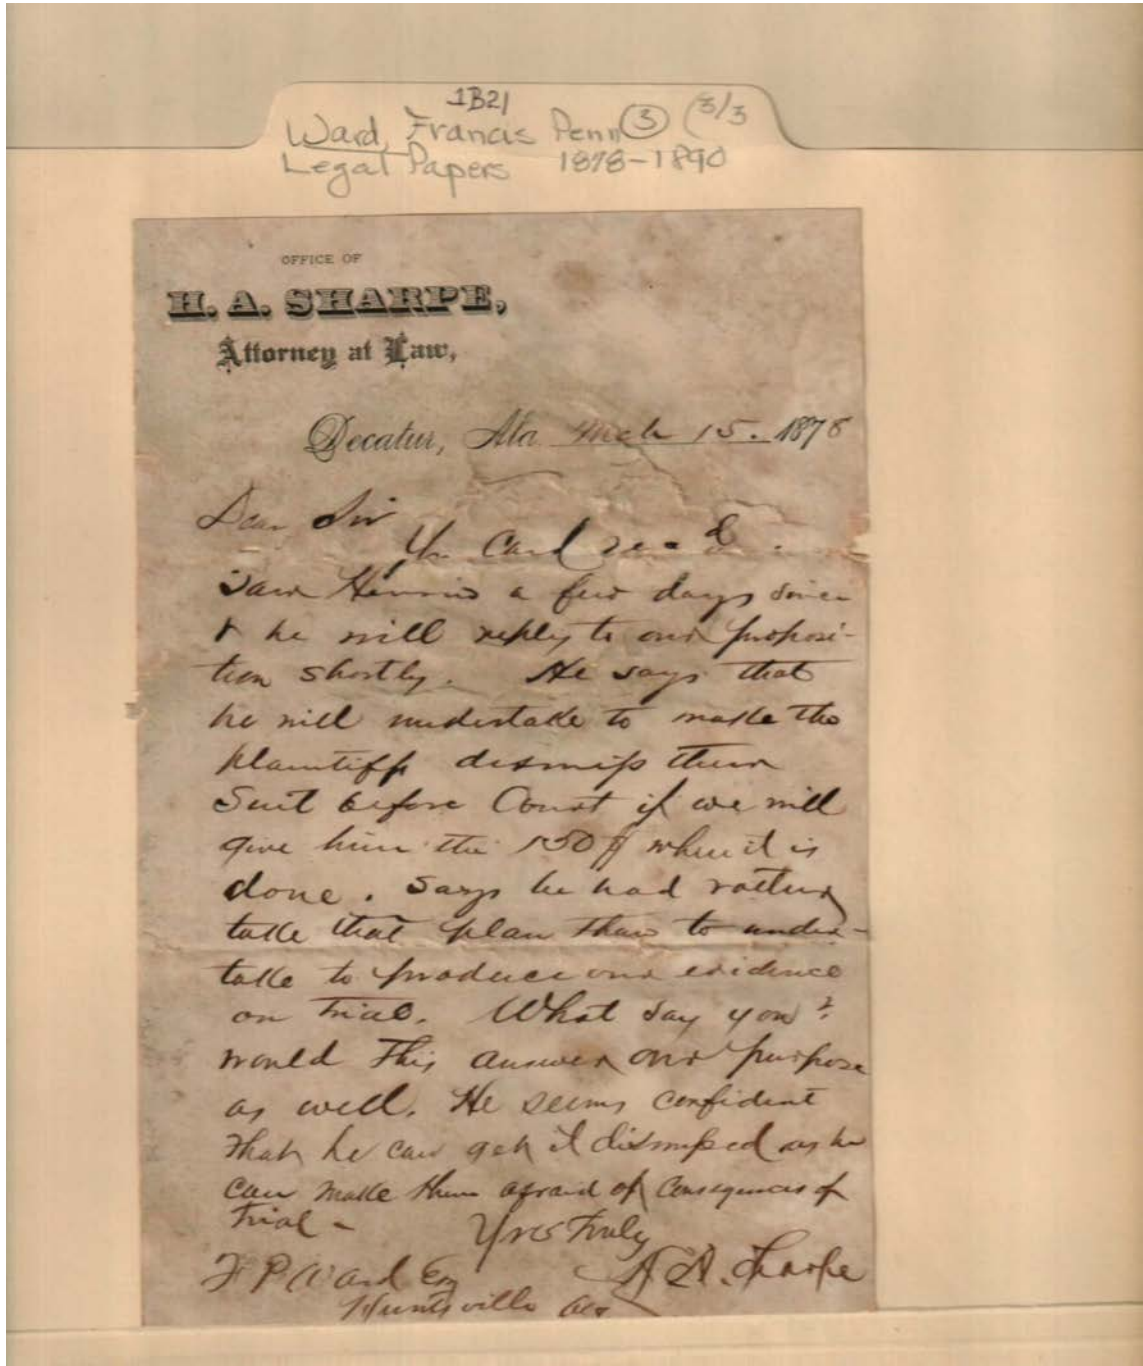 1B21
Ward, Francis Penn ③ (3/3
Legal Papers 1878-1890
OFFICE OF
H. A. SHARPE,
Attorney at Law,
Decatur, Ala Mch 15. 1878
Dear Sir
Yr Card recd.
Saw Harris a few days since
& he will reply to our proposi-
tion shortly. He says that
he will undertake to make the
plaintiff dismiss their
Suit before Court if we will
give him the 150 when it is
done. Says he had rather
take that plan than to under-
take to produce our evidence
on trial. What say you?
would this answer our purpose
as well. He seems confident
that he can get it dismissed as he
can make them afraid of consequences of
trial -
Yrs Truly
H A. Sharpe
F P Ward Esq
Huntsville Ala